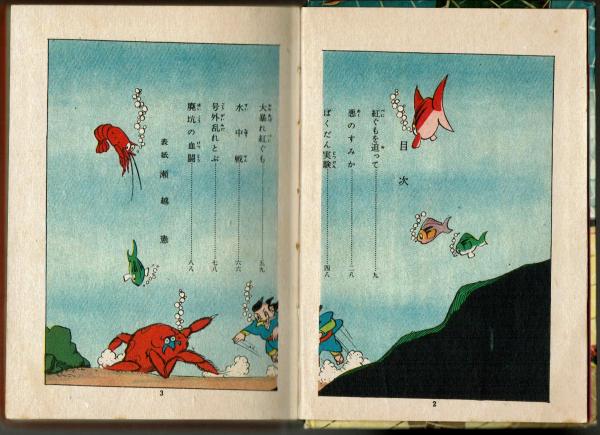 目次
紅ぐもを追って……九
悪のすみか……二八
ばくだん実験……四八
2
大暴れ紅ぐも……五九
水中戦……六六
号外乱れとぶ……七八
廃坑の血闘……八八
表紙 瀬越憲
3